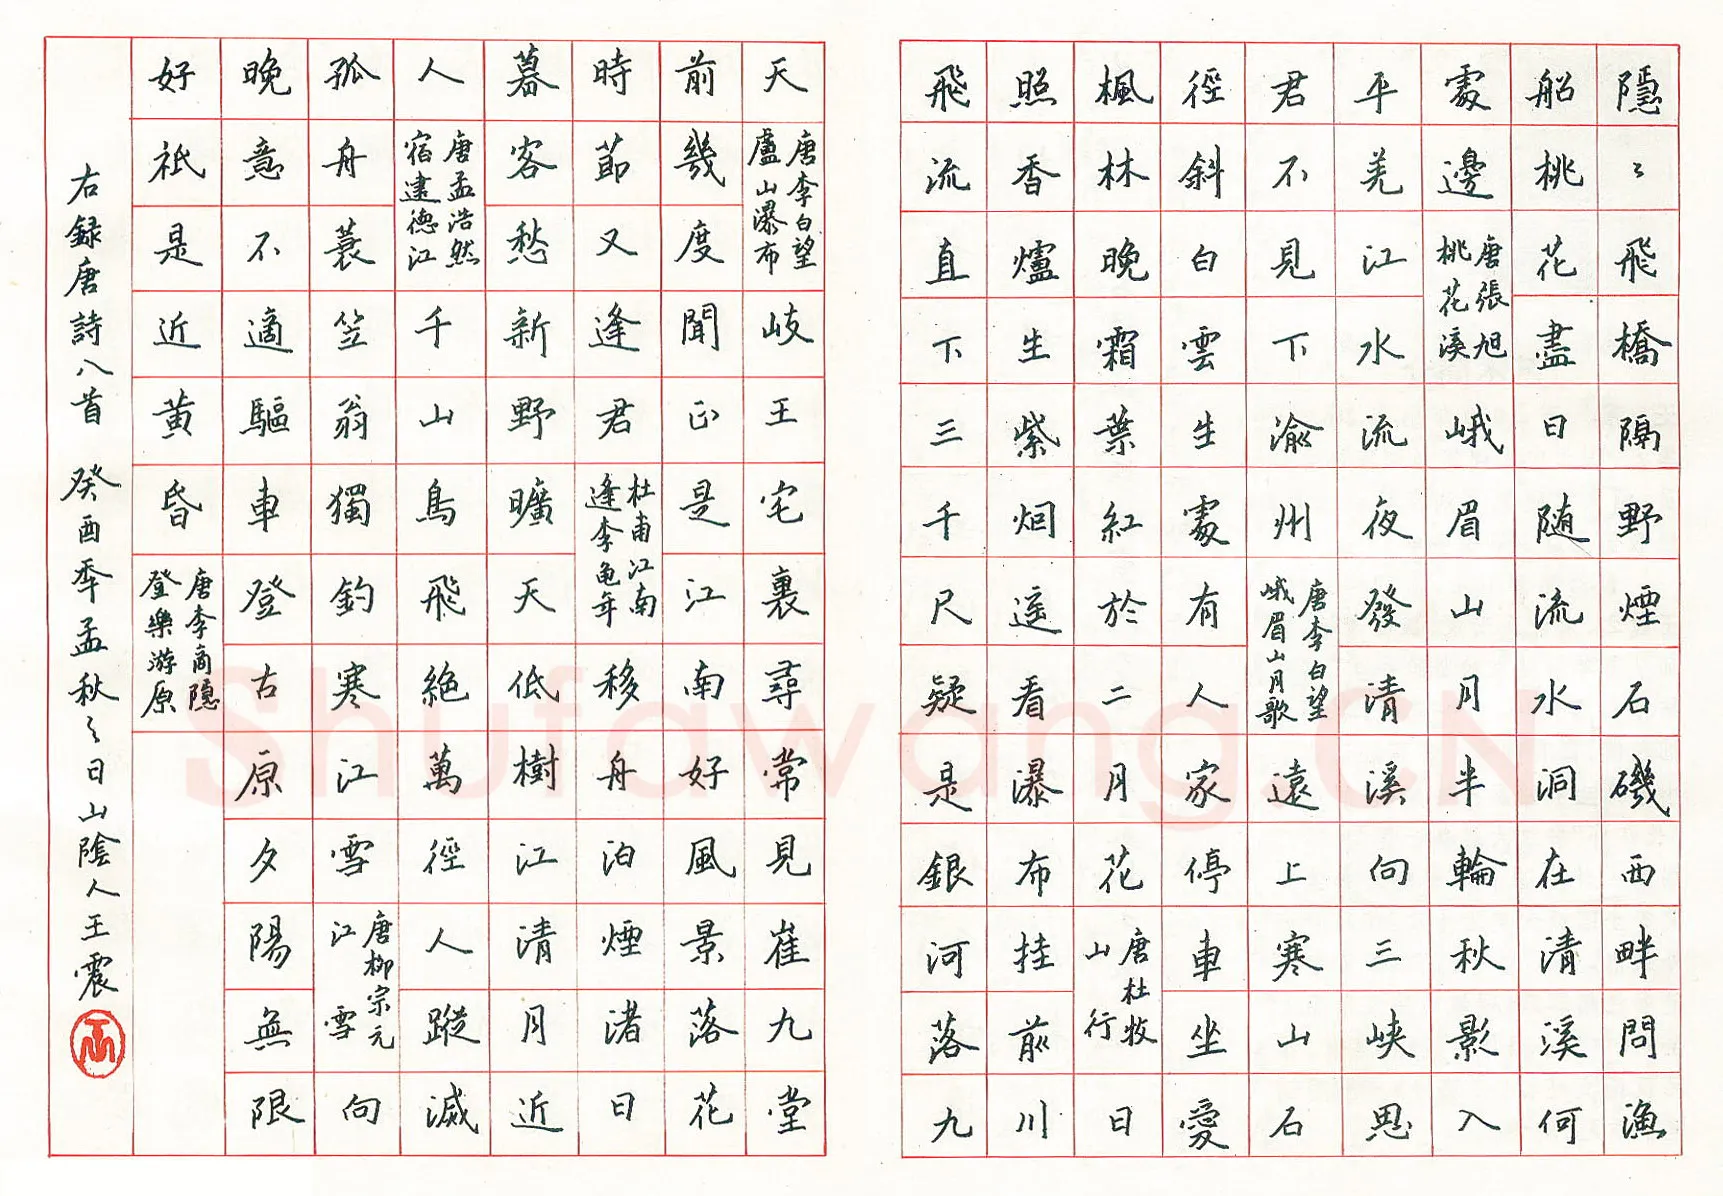 隱〻飛橋隔野煙石磯西畔問漁
船桃花盡日随流水洞在清溪何
處邊唐張旭桃花溪峨眉山月半輪秋影入
平羌江水流夜發清溪向三峽思
君不見下渝州唐李白望峨眉山月歌遠上寒山石
徑斜白雲生處有人家停車坐愛
楓林晚霜葉紅於二月花唐杜牧山行日
照香爐生紫烟遥看瀑布挂前川
飛流直下三千尺疑是銀河落九
天唐李白望盧山瀑布岐王宅裏尋常見崔九堂
前幾度聞正是江南好風景落花
時節又逢君杜甫江南逢李亀年移舟泊煙渚日
暮客愁新野曠天低樹江清月近
人唐孟浩然宿建德江千山鳥飛絶萬徑人蹤滅
孤舟蓑笠翁獨釣寒江雪唐柳宗元江雪向
晚意不適驅車登古原夕陽無限
好祇是近黄昏唐李商隱登樂游原
右録唐詩八首 癸酉年孟秋之日山陰人王震
Shufawang.CN